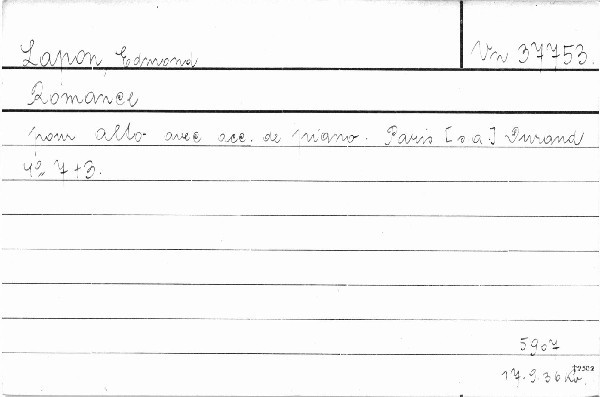 Lapon, Edmond
Vn 37753.
Romance
pour alto avec acc. de piano. Paris [s a.] Durand
4º 7+3.
5907
17.9.36